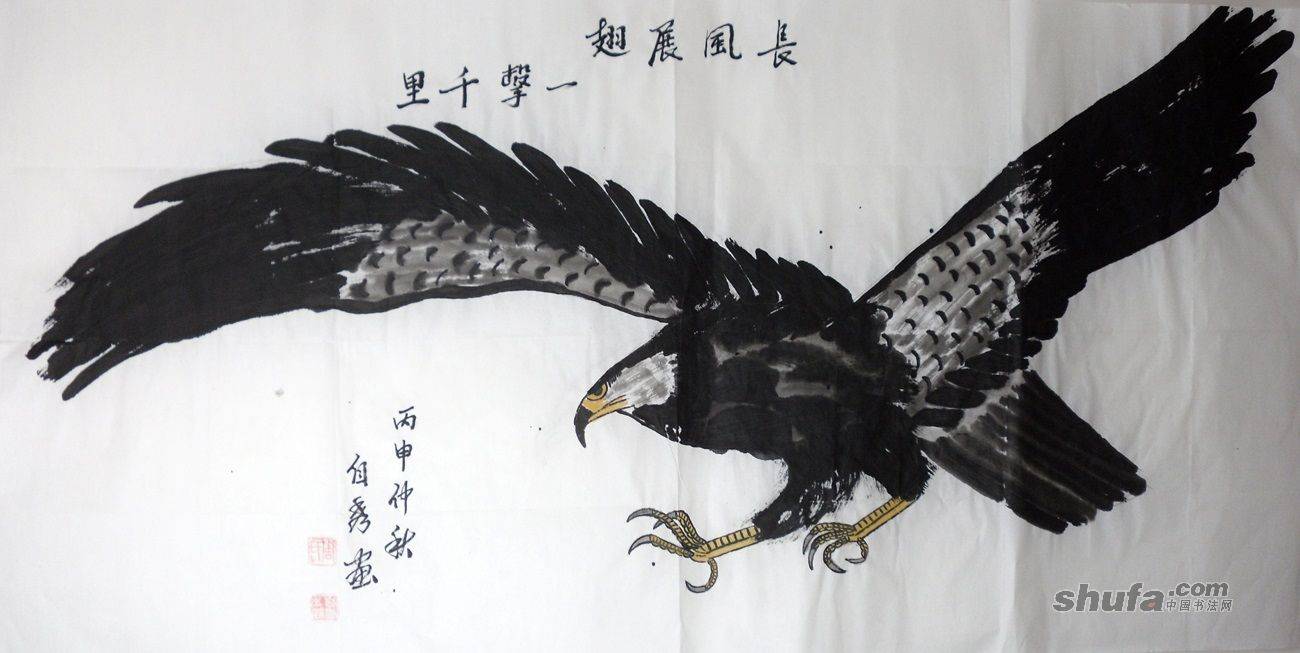 長風展翅
一擊千里
丙申仲秋
自秀画
shufa.com
中国书法网